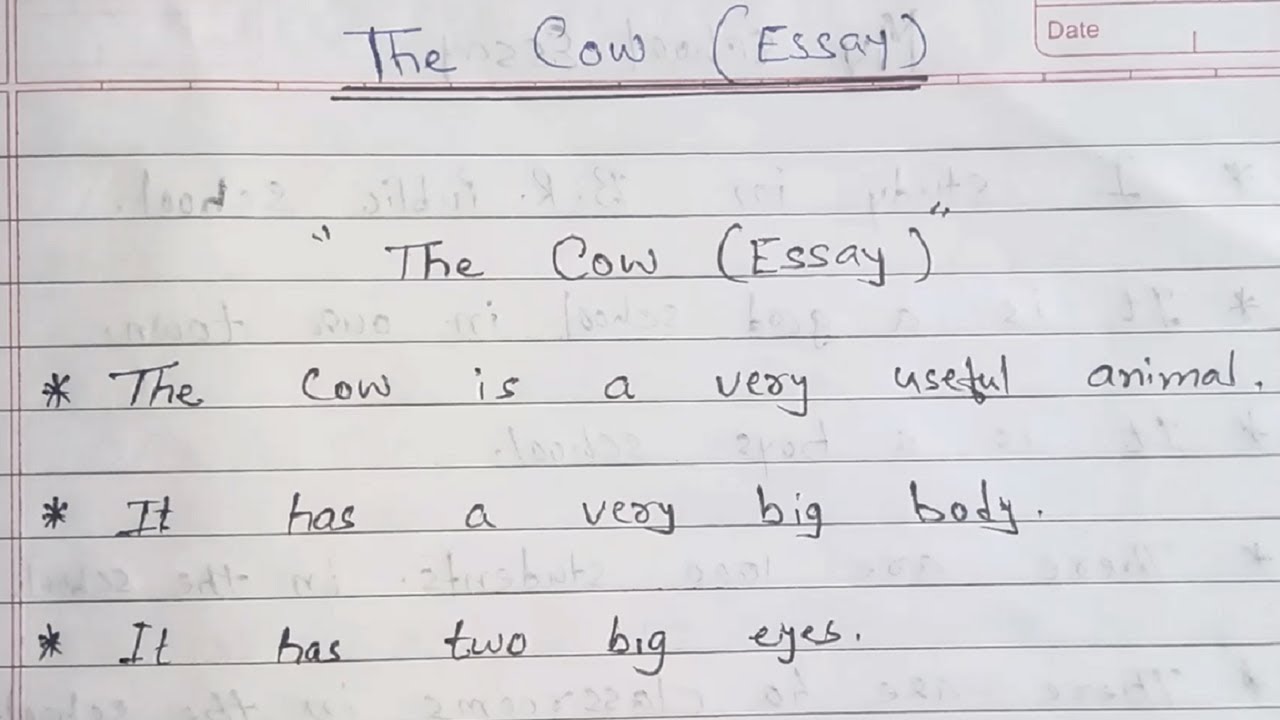 The Cow (Essay)
Date
" The Cow (Essay) "
* The Cow is a very useful animal.
* It has a very big body.
* It has two big eyes.